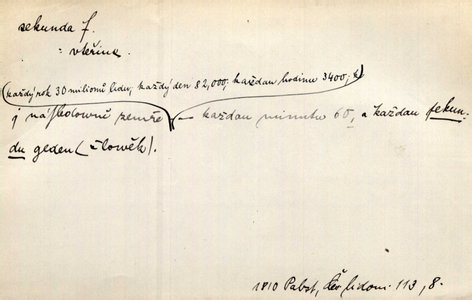 sekunda f.
: vteřina.
(každý rok 30 milionů lidu, každý den 82,000, každau hodinu 3400,)
j následowně zemře každau minutu 60, a každau sekun-
du geden (člowěk).
1810 Pabst, 113, 8.